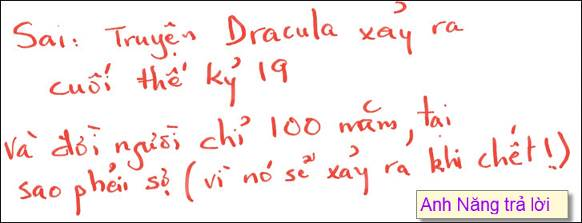 Sai: Truyện Dracula xảy ra
cuối thế kỷ 19
và đời người chỉ 100 năm, tại
sao phải sợ (vì nó sẽ xảy ra khi chết!)
Anh Năng trả lời